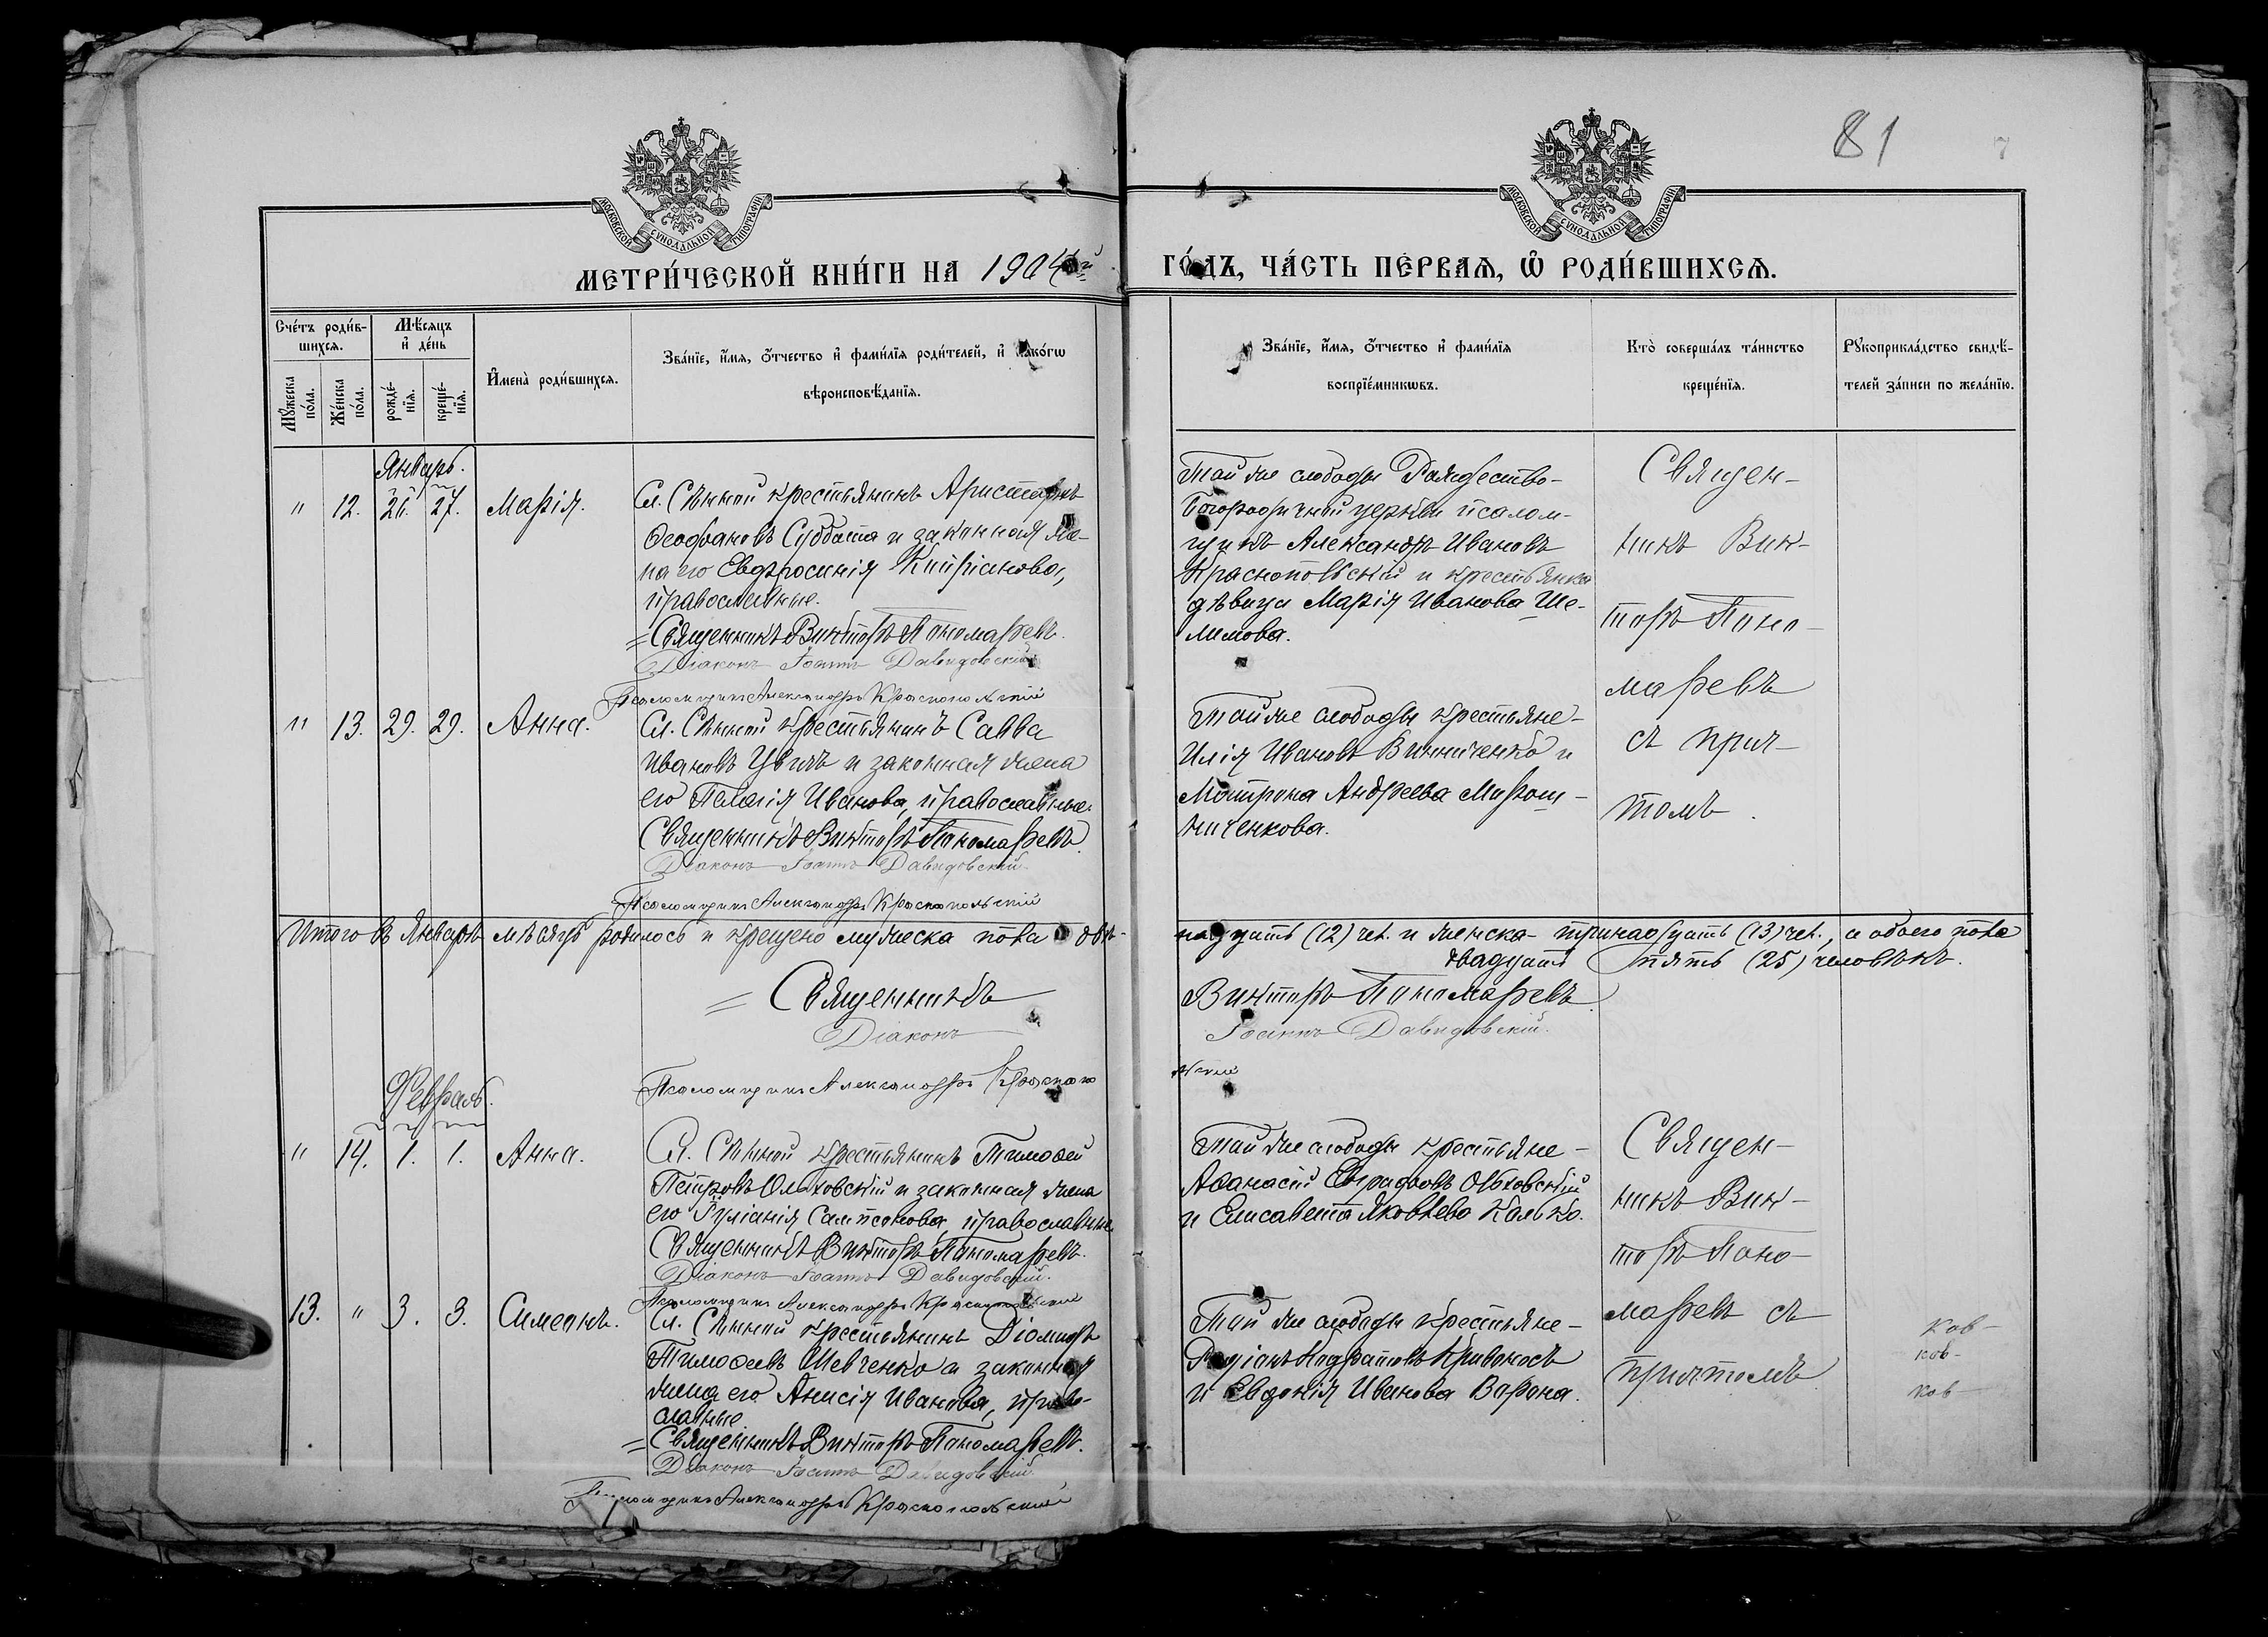 81
МОСКОВСКОЙ СѴНОДАЛЬНОЙ ТИПОГРАФІИ
МОСКОВСКОЙ СѴНОДАЛЬНОЙ ТИПОГРАФІИ
МЕТРИ́ЧЕСКОЙ КНИ́ГИ НА 1904й ГО́ДЪ, ЧА́СТЬ ПЕ́РВАЯ, Ѡ҆ РОДИ́ВШИХСЯ.
Сче́тъ роди́в-
шихся.
Мꙋ́жеска по́ла.
Же́нска по́ла.
Мѣ́сяцъ
и҆ де́нь
рожде́-нїя.
креще́-нїя.
И҆мена̀ роди́вшихся.
Зва́нїе, и҆́мя, ѻ҆́тчество и҆ фами́лїя роди́телей, и҆ како́гѡ
вѣроисповѣ́данїя.
Зва́нїе, и҆́мя, ѻ҆́тчество и҆ фами́лїя
воспрїе́мникѡвъ.
Кто̀ соверша́лъ та́инство
креще́нїя.
Рꙋкоприкла́дство свидѣ́-
телей за́писи по жела́нїю.
Январь.
" 12. 26. 27. Марія.
Сл. Сѣнной крестьянинъ Аристархъ
Ѳеофановъ Суббота и законная же-
на его Евфросинія Кипріанова,
православные.
Священникъ Викторъ Пономаревъ.
Діаконъ Іоаннъ Давидовскій
Псаломщикъ Александръ Краснопольскій
Той же слободы Рождество-
Богородичной церкви псалом-
щикъ Александръ Ивановъ
Краснопольскій и крестьянка
дѣвица Марія Иванова Ше-
лимова.
Священ-
никъ Вик-
торъ Поно-
маревъ
съ прич-
томъ.
" 13. 29. 29. Анна.
Сл. Сѣнной крестьянинъ Савва
Ивановъ Цвилъ и законная жена
его Пелагія Иванова, православные.
Священникъ Викторъ Пономаревъ.
Діаконъ Іоаннъ Давидовскій.
Псаломщикъ Александръ Краснопольскій
Той же слободы крестьяне-
Илія Ивановъ Винниченко и
Матрона Андреева Мирош-
ниченкова.
Итого въ Январѣ мѣсяцѣ родилось и крещено мужеска пола двѣ-
надцать (12) чел. и женска- тринадцать (13) чел., а обоего пола
двадцать пять (25) человѣкъ.
Священникъ Викторъ Пономаревъ
Діаконъ Іоаннъ Давидовскій.
Псаломщикъ Александръ Краснопольскій
Февраль.
" 14. 1. 1. Анна.
Сл. Сѣнной крестьянинъ Тимоѳей
Петровъ Ольховскій и законная жена
его Іуліанія Сампсонова, православные.
Священникъ Викторъ Пономаревъ.
Діаконъ Іоаннъ Давидовскій.
Псаломщикъ Александръ Краснопольскій
Той же слободы крестьяне-
Аѳанасій Евграфовъ Ольховскій
и Елисавета Яковлева Калько.
Священ-
никъ Вик-
торъ Поно-
маревъ съ
причтомъ
13. " 3. 3. Симеонъ.
Сл. Сѣнной крестьянинъ Діомидъ
Тимоѳеевъ Шевченко и законная
жена его Анисія Иванова, право-
славные.
Священникъ Викторъ Пономаревъ.
Діаконъ Іоаннъ Давидовскій.
Псаломщикъ Александръ Краснопольскій
Той же слободы крестьяне-
Кодратовъ Кривоносъ
и Евдокія Иванова Ворона.
ков-
ков-
ков-